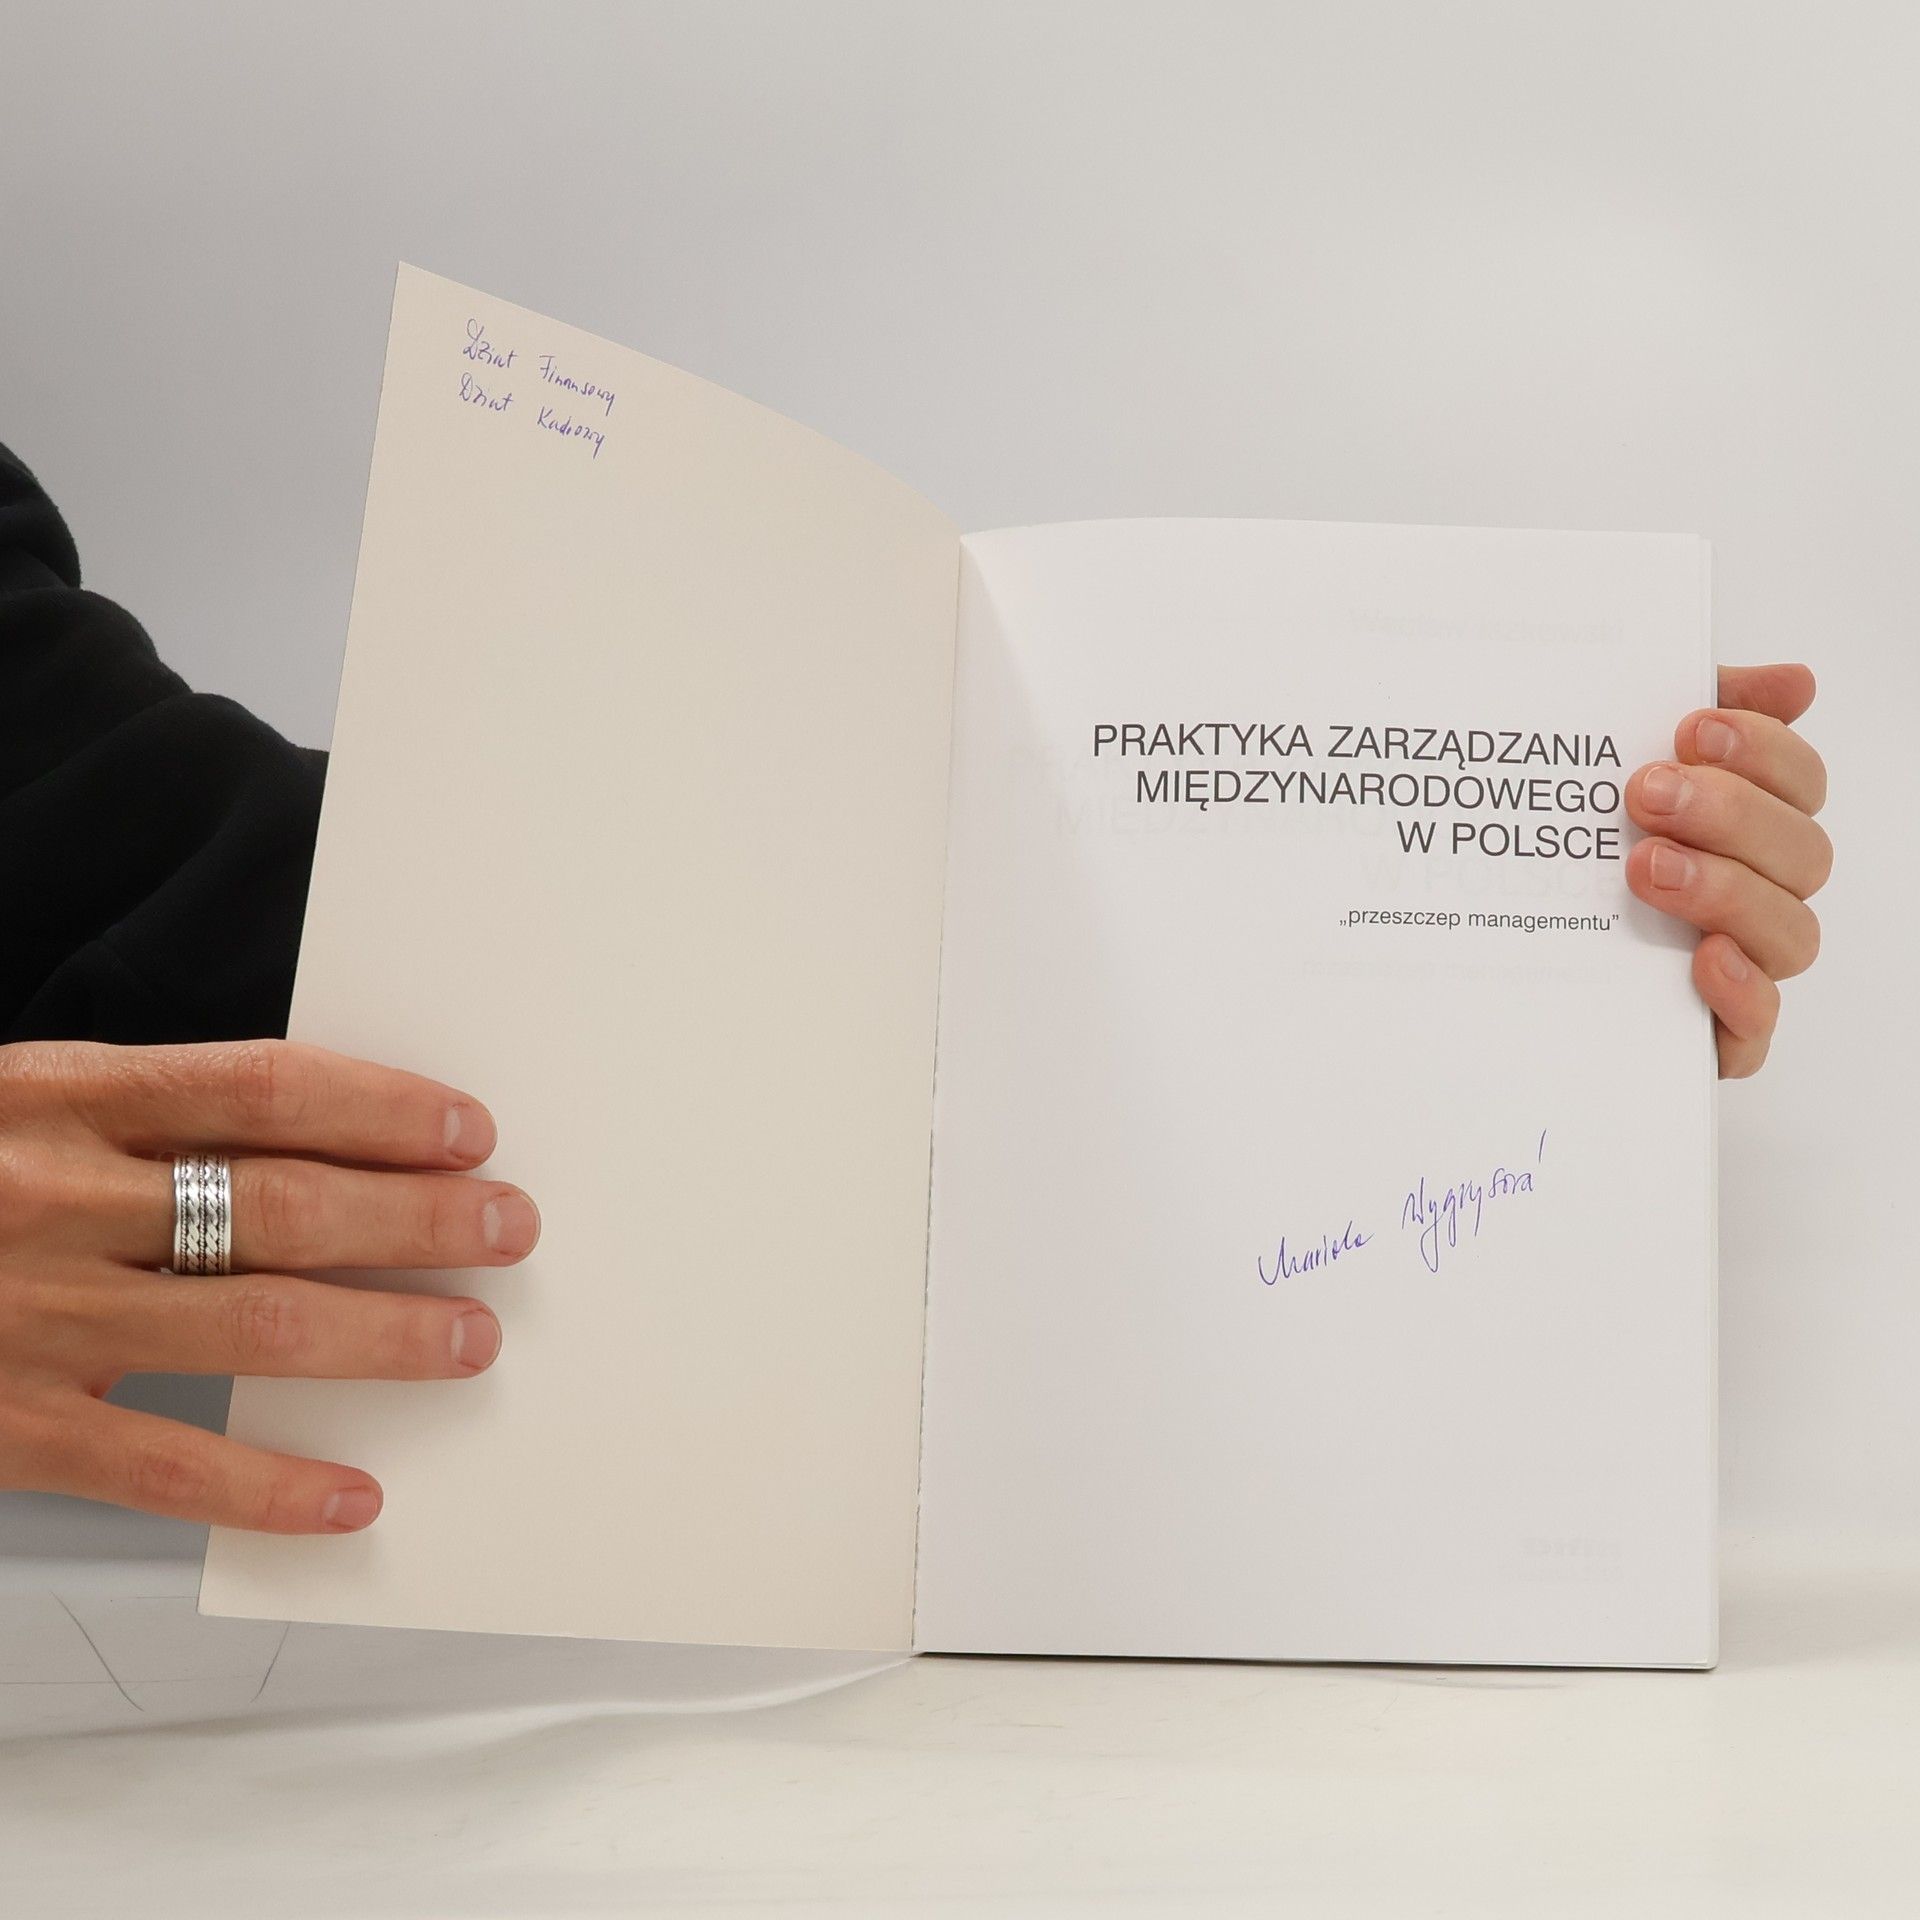 Dział Finansowy
Dział Kadrowy
PRAKTYKA ZARZĄDZANIA
MIĘDZYNARODOWEGO
W POLSCE
„przeszczep managementu”
Mariola